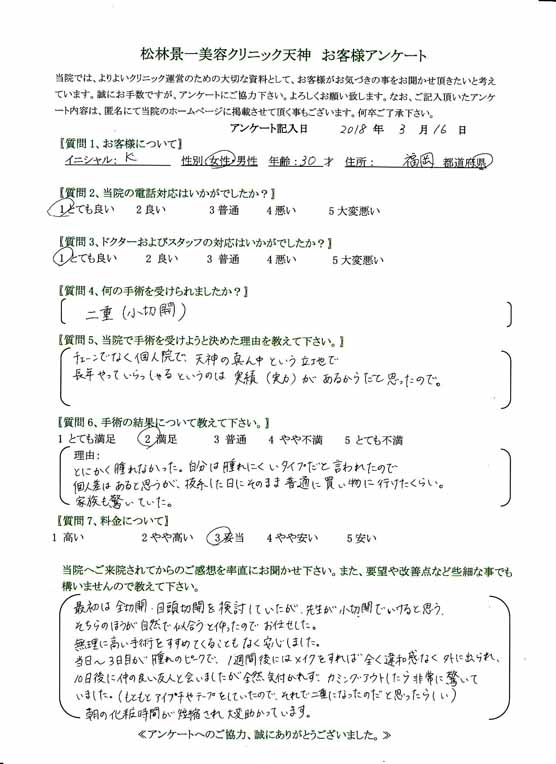 松林景一美容クリニック天神　お客様アンケート
当院では、よりよいクリニック運営のための大切な資料として、お客様がお気づきの事をお聞かせ頂きたいと考え
ています。誠にお手数ですが、アンケートにご協力下さい。よろしくお願い致します。なお、ご記入頂いたアンケ
ート内容は、匿名にて当院のホームページに掲載させて頂く事もございます。何卒ご了承下さい。
アンケート記入日　2018 年　3 月 16 日
〖質問1、お客様について〗
イニシャル：K　性別 女性・男性　年齢：30 才　住所：　福岡　都道府県
〖質問2、当院の電話対応はいかがでしたか？〗
1とても良い　2良い　3普通　4悪い　5大変悪い
〖質問3、ドクターおよびスタッフの対応はいかがでしたか？〗
1とても良い　2 良い　3 普通　4悪い　5大変悪い
〖質問4、何の手術を受けられましたか？〗
二重（小切開）
〖質問5、当院で手術を受けようと決めた理由を教えて下さい。〗
チェーンでなく個人院で、天神の真ん中という立地で
長年やっていらっしゃるというのは 実績（実力）が あるからだと思ったので。
〖質問6、手術の結果について教えて下さい。〗
1 とても満足　2 満足　3 普通　4 やや不満　5 とても不満
理由：
とにかく腫れなかった。自分は腫れにくいタイプだと言われたので
個人差はあると思うが、抜糸した日にそのまま普通に買い物に行けたくらい。
家族も驚いていた。
〖質問7、料金について〗
1 高い　2やや高い　3妥当　4やや安い　5安い
当院へご来院されてからのご感想を率直にお聞かせ下さい。また、要望や改善点など些細な事でも
構いませんので教えて下さい。
最初は 全切開・目頭切開を検討していたが、先生が小切開でいけると思う、
そちらのほうが自然で似合うと仰ったので お任せした。
無理に高い手術をすすめてくることもなく安心しました。
当日〜3日目が腫れのピークで、1週間後にはメイクをすれば全く違和感なく外に出られ、
10日後に仲の良い友人と会いましたが全然気付かれず、カミングアウトしたら非常に驚いて
いました。（もともとアイプチやテープをしていたので、それで二重になったのだと思ったらしい）
朝の化粧時間が短縮され大変助かっています。
≪アンケートへのご協力、誠にありがとうございました。≫